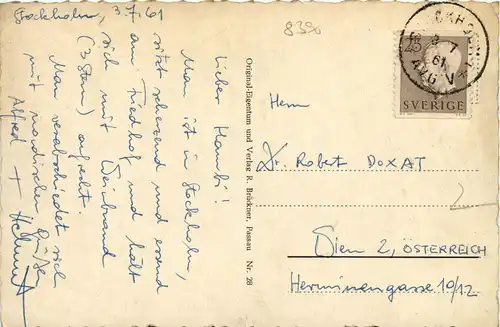 Stockholm, 3.7.61
Lieber Hansl!
Man ist in Stockholm,
sitzt scherzend und
am Friedhof und hält
sich mit Weinbrand
(3 Stern) aufrecht.
Man verabschiedet sich
mit nordischen Grüßen
Alfred + Helmut
Original-Eigentum und Verlag R. Brückner, Passau Nr. 28
8390
STOCKHOLM
3 7
61
AVG V
25
SVERIGE
Herrn
Dr. Robert DOXAT
Wien 2, ÖSTERREICH
Herminengasse 10/12
2